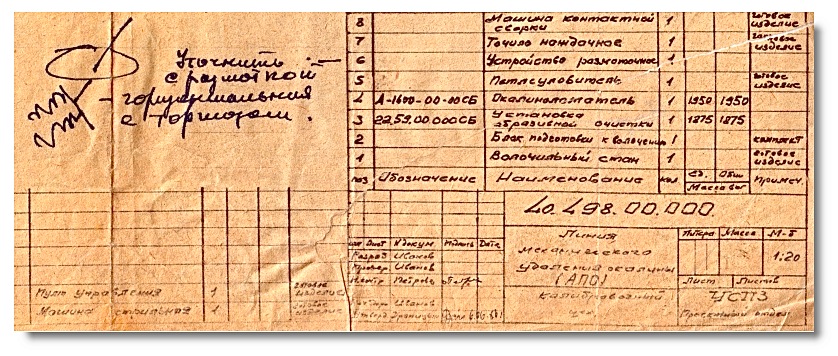 Уточнить :—
с размоткой
— горизонтальная
с тормозом.
8 Машина контактной сварки 1 готовое изделие
7 Точило наждачное 1 готовое изделие
6 Устройство размоточное 1
5 Петлеуловитель 1 готовое изделие
4 А-1600-00-00СБ Окалиноломатель 1 1950 1950
3 22.59.00.000СБ Установка абразивной очистки 1 1875 1875
2 Блок подготовки к волочению 1 комплект
1 Волочильный стан 1 готовое изделие
поз Обозначение Наименование кол. Ед. Общ Масса в кг Примеч.
40.498.00.000.
Изм Лист № докум Подпись Дата
Разраб Иванов
Провер Иванов
Н.контр Петрова
Иванов
Утверд
Линия
механического
удаления окалины
(АПО)
Калибровочный
цех
Литера Масса М-Б
1:20
Лист Листов
УСПЗ
Проектный отдел
Пульт управления 1 готовое изделие
Машина 1 готовое изделие